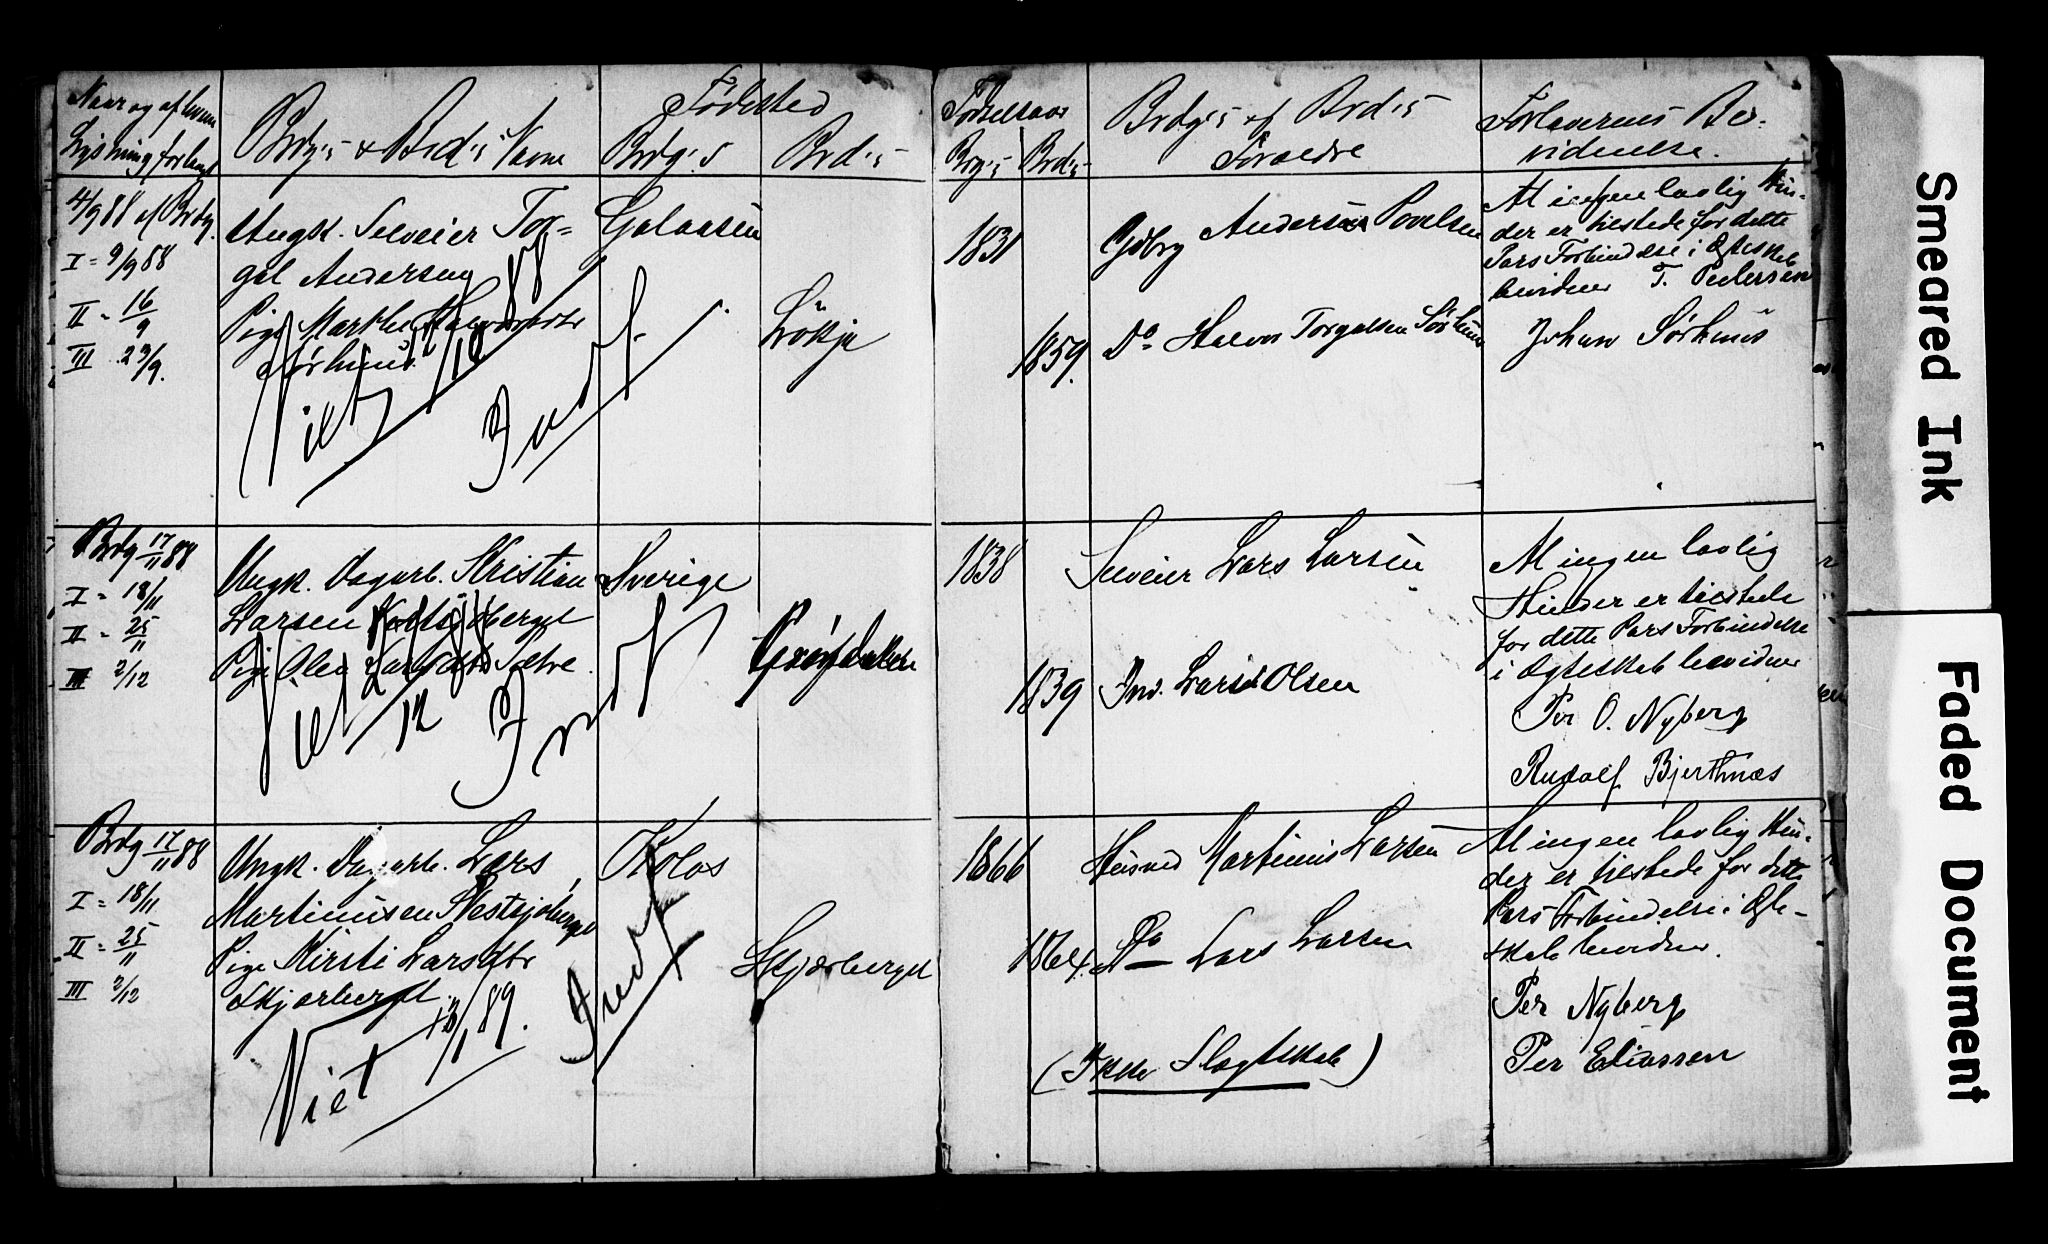 Naar og af hvem
Lysning forlangt
Brdg's & Brd's Navne
Fødested
Brdg's
Brd's
Fødselsaar
Brg's
Brd's
Brdg's og Brd's
Foreldre
Forloverens Be-
vidnelse.
4/9 88 af Brdg.
I = 9/9 88
II = 16/9
III 23/9.
Ungk. Selveier Tor-
gal Andersen
Pige Marthe
Sørhuus
Viet 12/10 88
Indf.
Galaasen
Lökja
1831
1859.
Gdbrg Anders Povelsen
Do Halvor Torgalsen Sørhuus
At ingen lovlig Hin-
der er tilstede for dette
Pars Forbindelse i Ægteskab
bevidner T. Pedersen
Johan Sørhuus
Brdg 17/11 88
I = 18/11
II = 25/11
III 2/12
Ungk. Dagarb. Kristian
Larsen
Pige Olea Larsdtr Sætre
Viet 12 88
Indf
Sverige
1838
1839
Selveier Lars Larsen
Ind. Lars Olsen
At ingen lovlig
Hinder er tilstede
for dette Pars Forbindelse
i Ægteskab bevidner
Per O. Nyberg
Rudolf Bjerthnæs
Brdg 17/11 88
I = 18/11
II = 25/11
III 2/12
Ungk. Dagarb. Lars
Martinusen
Pige Kirsti Larsdtr
Skjærberget
Viet 13/1 89.
Indf
Kolos
Skjærberget
1866
1864.
Husmd Martinus Larsen
Do Lars Larsen
(Ikke Slægtskab)
At ingen lovlig Hin-
der er tilstede for dette
Pars Forbindelse i Ægte-
skab bevidner.
Per Nyberg
Per Eliassen
Smeared Ink
Faded Document